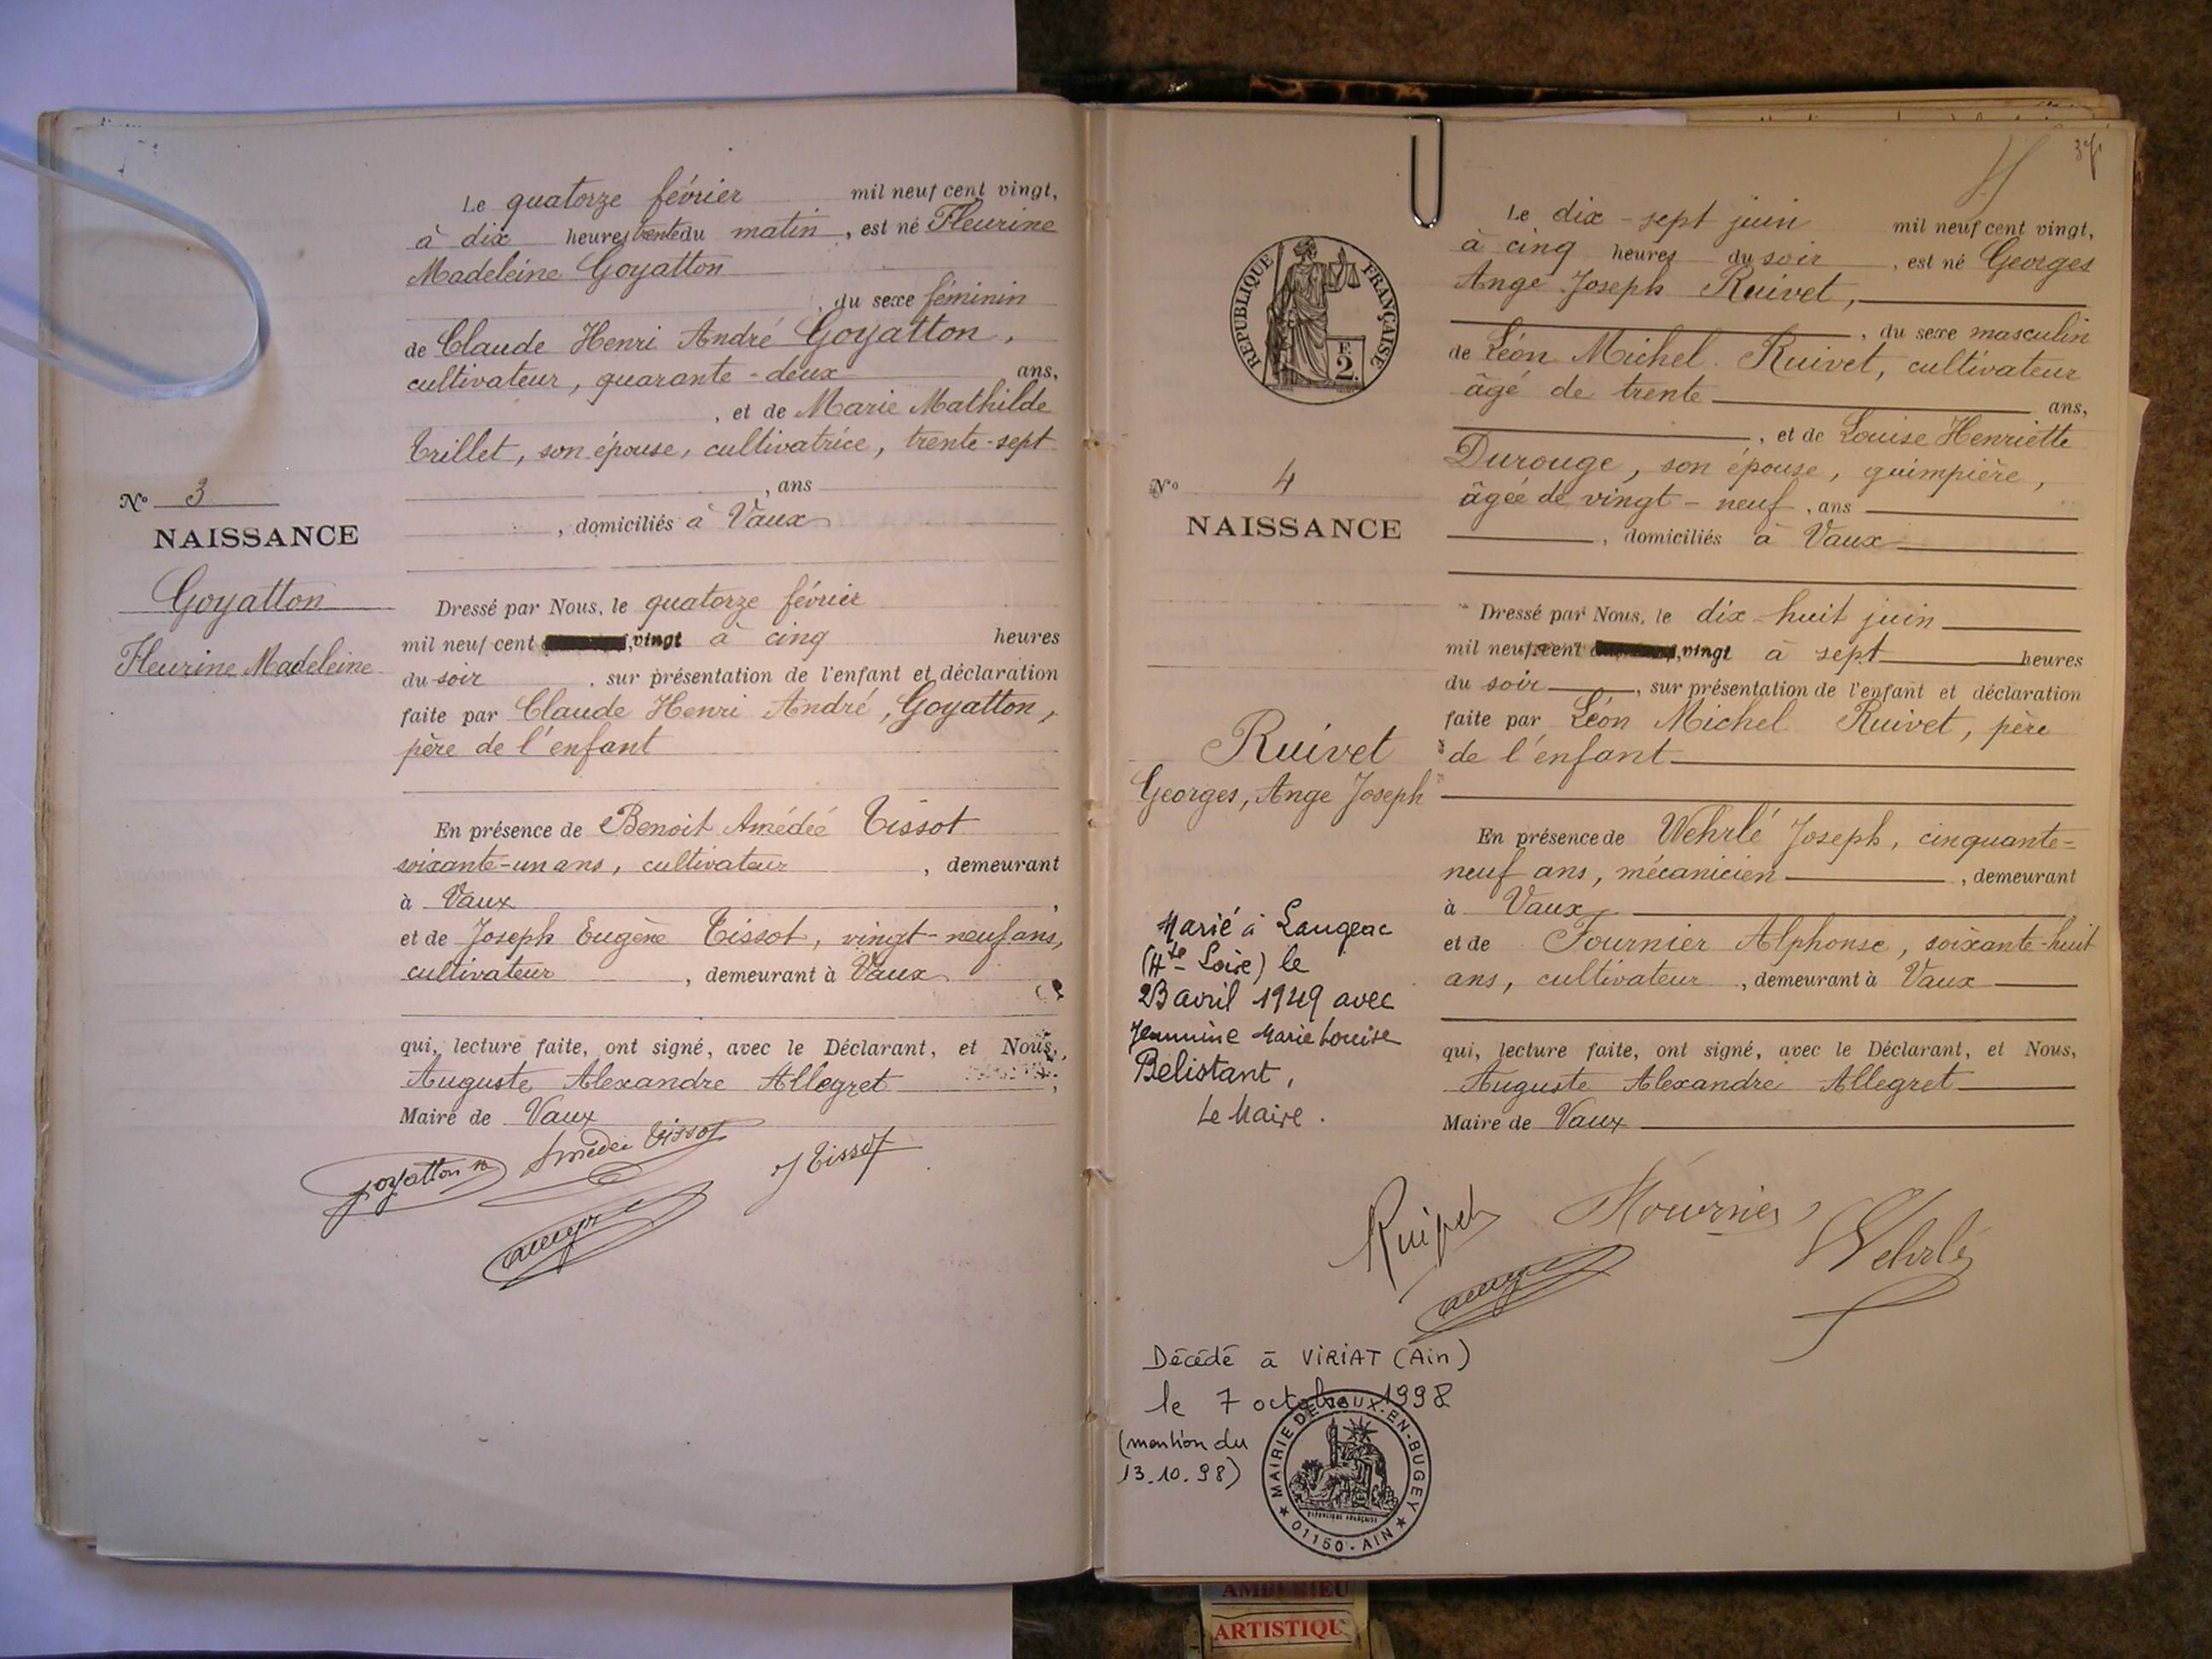 Le quatorze février mil neuf cent vingt,
à dix heures trente du matin, est né Fleurine
Madeleine Goyatton
, du sexe féminin
de Claude Henri André Goyatton,
cultivateur, quarante-deux ans,
, et de Marie Mathilde
Trillet, son épouse, cultivatrice, trente-sept
, ans
, domiciliés à Vaux
N° 3
NAISSANCE
Goyatton
Fleurine Madeleine
Dressé par Nous, le quatorze février
mil neuf cent vingt à cinq heures
du soir, sur présentation de l'enfant et déclaration
faite par Claude Henri André, Goyatton,
père de l'enfant
En présence de Benoit Amédée Tissot
soixante-un ans, cultivateur, demeurant
à Vaux,
et de Joseph Eugène Tissot, vingt-neuf ans,
cultivateur, demeurant à Vaux
qui, lecture faite, ont signé, avec le Déclarant, et Nous,
Auguste Alexandre Allegret,
Maire de Vaux
Goyatton
Amédée Tissot
J Tissot
Le dix-sept juin mil neuf cent vingt,
à cinq heures du soir, est né Georges
Ange Joseph Ruivet,
, du sexe masculin
de Léon Michel Ruivet, cultivateur
âgé de trente ans,
, et de Louise Henriette
Durouge, son épouse, guimpière,
âgée de vingt-neuf, ans
, domiciliés à Vaux
RÉPUBLIQUE FRANÇAISE
F. 2.
N° 4
NAISSANCE
Ruivet
Georges, Ange Joseph
Dressé par Nous, le dix-huit juin
mil neuf cent vingt à sept heures
du soir, sur présentation de l'enfant et déclaration
faite par Léon Michel Ruivet, père
de l'enfant
En présence de Wehrlé Joseph, cinquante-
neuf ans, mécanicien, demeurant
à Vaux,
et de Fournier Alphonse, soixante-huit
ans, cultivateur, demeurant à Vaux
qui, lecture faite, ont signé, avec le Déclarant, et Nous,
Auguste Alexandre Allegret
Maire de Vaux
Marié à Langeac
(Hte Loire) le
23 avril 1949 avec
Jeannine Marie Louise
Belistant,
Le Maire.
Ruivet
Fournier
Wehrlé
Décédé à VIRIAT (Ain)
le 7 octobre 1998
(mention du
13.10.98)
MAIRIE DE VAUX-EN-BUGEY
01150 - AIN
AMBERIEU
ARTISTIQU